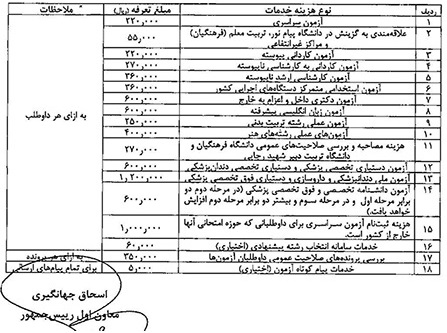 ردیف نوع هزینه خدمات مبلغ تعرفه (ریال) ملاحظات
۱ آزمون سراسری ۲۲۰,۰۰۰
۲ علاقه‌مندی به گزینش در دانشگاه پیام نور، تربیت معلم (فرهنگیان)
و مراکز غیرانتفاعی ۵۵,۰۰۰
۳ آزمون کاردانی پیوسته ۲۲۰,۰۰۰
۴ آزمون کاردانی به کارشناسی ناپیوسته ۲۷۰,۰۰۰
۵ آزمون کارشناسی ارشد ناپیوسته ۳۶۰,۰۰۰
۶ آزمون استخدامی متمرکز دستگاه‌های اجرایی کشور ۳۶۰,۰۰۰
۷ آزمون دکتری داخل و اعزام به خارج ۶۰۰,۰۰۰
۸ آزمون زبان انگلیسی پیشرفته ۶۰۰,۰۰۰
۹ آزمون عملی رشته تربیت بدنی ۲۵۰,۰۰۰
۱۰ آزمون‌های عملی رشته‌های هنر ۴۰۰,۰۰۰
۱۱ هزینه مصاحبه و بررسی صلاحیت‌های عمومی دانشگاه فرهنگیان و
دانشگاه تربیت دبیر شهید رجایی ۲۷۰,۰۰۰
۱۲ آزمون دستیاری تخصصی پزشکی و دستیاری تخصصی دندان‌پزشکی ۶۰۰,۰۰۰
۱۳ آزمون ملی دندانپزشکی و داروسازی و دستیاری فوق تخصصی پزشکی ۱,۲۰۰,۰۰۰
۱۴ آزمون دانشنامه تخصصی و فوق تخصصی پزشکی (در مرحله دوم دو
برابر مرحله اول و در مرحله سوم و بیشتر دو برابر مرحله دوم افزایش
خواهد یافت) ۶۰۰,۰۰۰
به ازای هر داوطلب
۱۵ هزینه ثبت‌نام آزمون سراسری برای داوطلبانی که حوزه امتحانی آنها
خارج از کشور است. ۱,۰۰۰,۰۰۰
۱۶ خدمات سامانه انتخاب رشته پیشنهادی (اختیاری) ۶۰,۰۰۰
۱۷ بررسی پرونده‌های صلاحیت عمومی داوطلبان آزمون‌ها ۳۵۰,۰۰۰ به ازای هر پرونده
۱۸ خدمات پیام کوتاه آزمون (اختیاری) ۵,۰۰۰ برای تمام پیام‌های ارسالی
اسحاق جهانگیری
معاون اول رییس‌جمهور